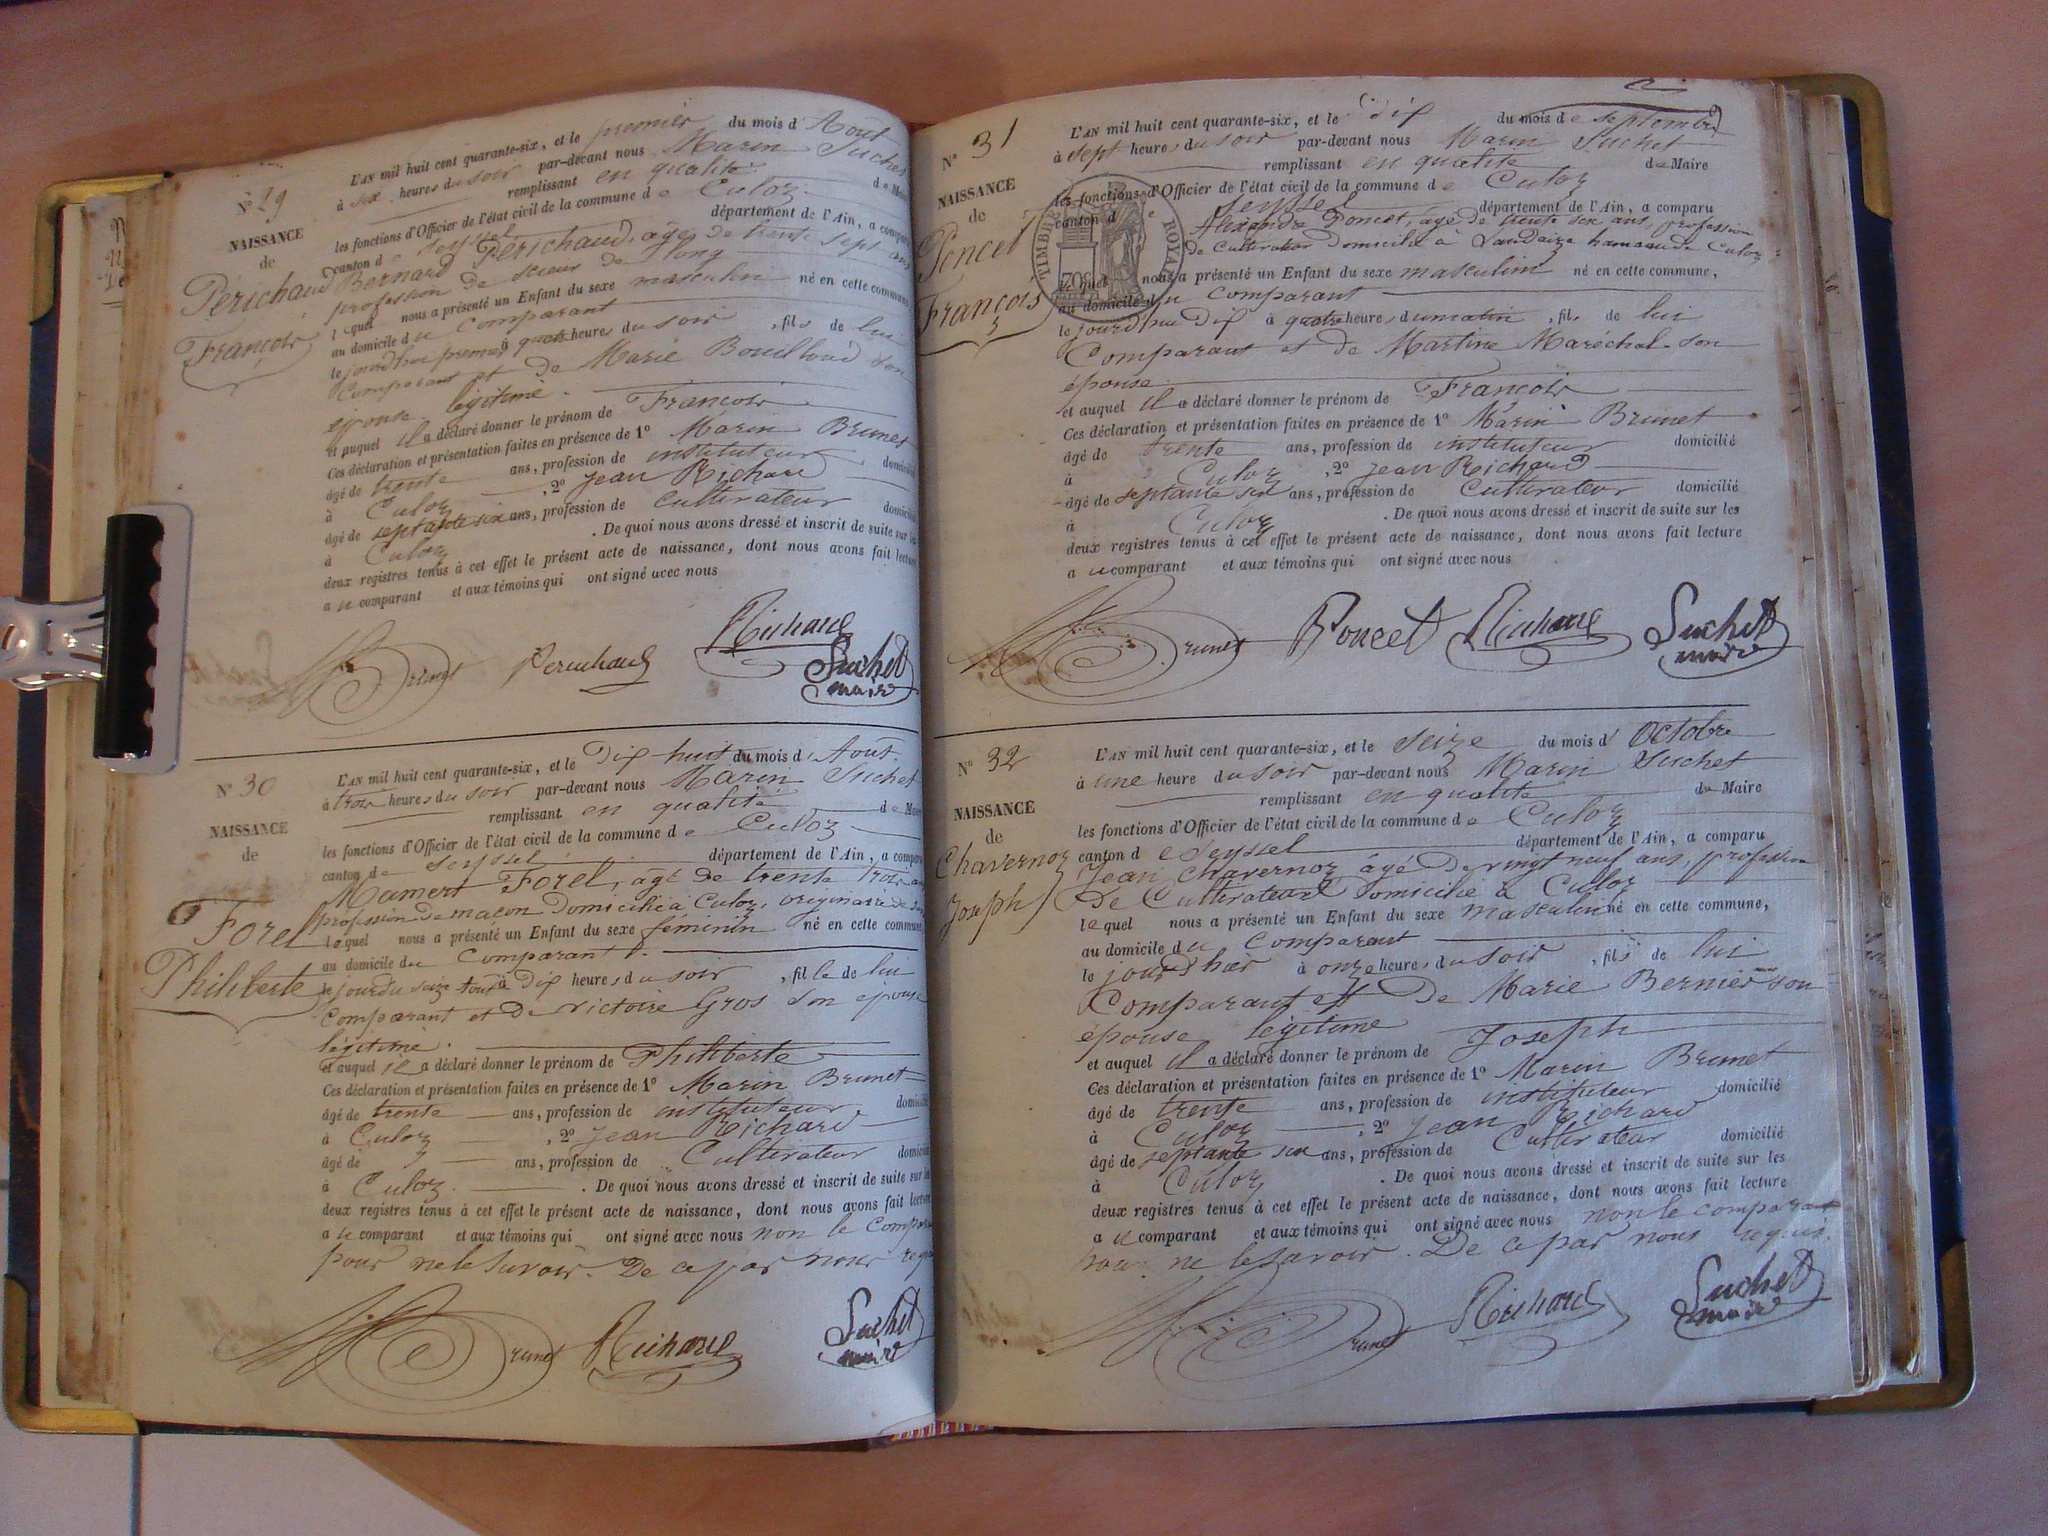 N° 29
NAISSANCE
de
Périchaud
François
L'AN mil huit cent quarante-six, et le premier du mois d'Août
à six heures du soir par-devant nous Marin Suchet
remplissant en qualité de Maire
les fonctions d'Officier de l'état civil de la commune de Culoz
canton de Seyssel département de l'Ain, a comparu
Bernard Périchaud, âgé de trente sept ans
profession de scieur de long
lequel nous a présenté un Enfant du sexe masculin né en cette commune
au domicile du comparant
le jourd'hui premier à quatre heures du soir, fils de lui
comparant et de Marie Bouilloud son
épouse légitime.
et auquel il a déclaré donner le prénom de François
Ces déclaration et présentation faites en présence de 1° Marin Brunet
âgé de trente ans, profession de instituteur domicilié
à Culoz, 2° Jean Richard
âgé de septante six ans, profession de cultivateur domicilié
à Culoz. De quoi nous avons dressé et inscrit de suite sur les
deux registres tenus à cet effet le présent acte de naissance, dont nous avons fait lecture
au comparant et aux témoins qui ont signé avec nous
Brunet Perichaud Richard Suchet
maire
N° 30
NAISSANCE
de
Forel
Philiberte
L'AN mil huit cent quarante-six, et le Dix huit du mois d'Août
à trois heures du soir par-devant nous Marin Suchet
remplissant en qualité de Maire
les fonctions d'Officier de l'état civil de la commune de Culoz
canton de Seyssel département de l'Ain, a comparu
Mamert Forel, âgé de trente trois ans
profession de maçon domicilié à Culoz, originaire de
lequel nous a présenté un Enfant du sexe féminin né en cette commune
au domicile du comparant.
le jourdu seize Aout à Dix heures du soir, fille de lui
comparant et de victoire Gros son épouse
légitime.
et auquel il a déclaré donner le prénom de Philiberte
Ces déclaration et présentation faites en présence de 1° Marin Brunet
âgé de trente ans, profession de instituteur, domicilié
à Culoz, 2° Jean Richard
âgé de ans, profession de Cultivateur domicilié
à Culoz. De quoi nous avons dressé et inscrit de suite sur les
deux registres tenus à cet effet le présent acte de naissance, dont nous avons fait lecture
au comparant et aux témoins qui ont signé avec nous non le comparant
pour ne le savoir. De ce par nous requis
Brunet Richard Suchet
maire
N° 31
NAISSANCE
de
Poncet
François
TIMBRE ROYAL
L'AN mil huit cent quarante-six, et le dix du mois de septembre
à sept heures du soir par-devant nous Marin Suchet
remplissant en qualité de Maire
les fonctions d'Officier de l'état civil de la commune de Culoz
canton de Seyssel département de l'Ain, a comparu
Alexandre Poncet, âgé de trente six ans, profession
de cultivateur domicilié à Landaize hameau de Culoz
lequel nous a présenté un Enfant du sexe masculin né en cette commune,
au domicile du comparant
le jourd'hui dix à quatre heures du matin, fils de lui
Comparant et de Martine Maréchal son
épouse
et auquel il a déclaré donner le prénom de François
Ces déclaration et présentation faites en présence de 1° Marin Brunet
âgé de trente ans, profession de instituteur domicilié
à Culoz, 2° Jean Richard
âgé de septante six ans, profession de Cultivateur domicilié
à Culoz. De quoi nous avons dressé et inscrit de suite sur les
deux registres tenus à cet effet le présent acte de naissance, dont nous avons fait lecture
au comparant et aux témoins qui ont signé avec nous
Brunet Poncet Richard Suchet
maire
N° 32
NAISSANCE
de
Chavernoz
Joseph
L'AN mil huit cent quarante-six, et le seize du mois d'Octobre
à une heure du soir par-devant nous Marin Suchet
remplissant en qualité de Maire
les fonctions d'Officier de l'état civil de la commune de Culoz
canton de Seyssel département de l'Ain, a comparu
Jean Chavernoz âgé de vingt neuf ans, profession
de Cultivateur domicilié à Culoz
lequel nous a présenté un Enfant du sexe masculin né en cette commune,
au domicile du comparant
le jour d'hier à onze heures du soir, fils de lui
Comparant et de Marie Bernier son
épouse légitime
et auquel il a déclaré donner le prénom de Joseph
Ces déclaration et présentation faites en présence de 1° Marin Brunet
âgé de trente ans, profession de instituteur domicilié
à Culoz, 2° Jean Richard
âgé de septante six ans, profession de Cultivateur domicilié
à Culoz. De quoi nous avons dressé et inscrit de suite sur les
deux registres tenus à cet effet le présent acte de naissance, dont nous avons fait lecture
au comparant et aux témoins qui ont signé avec nous non le comparant
pour ne le savoir. De ce par nous requis.
Brunet Richard Suchet
maire